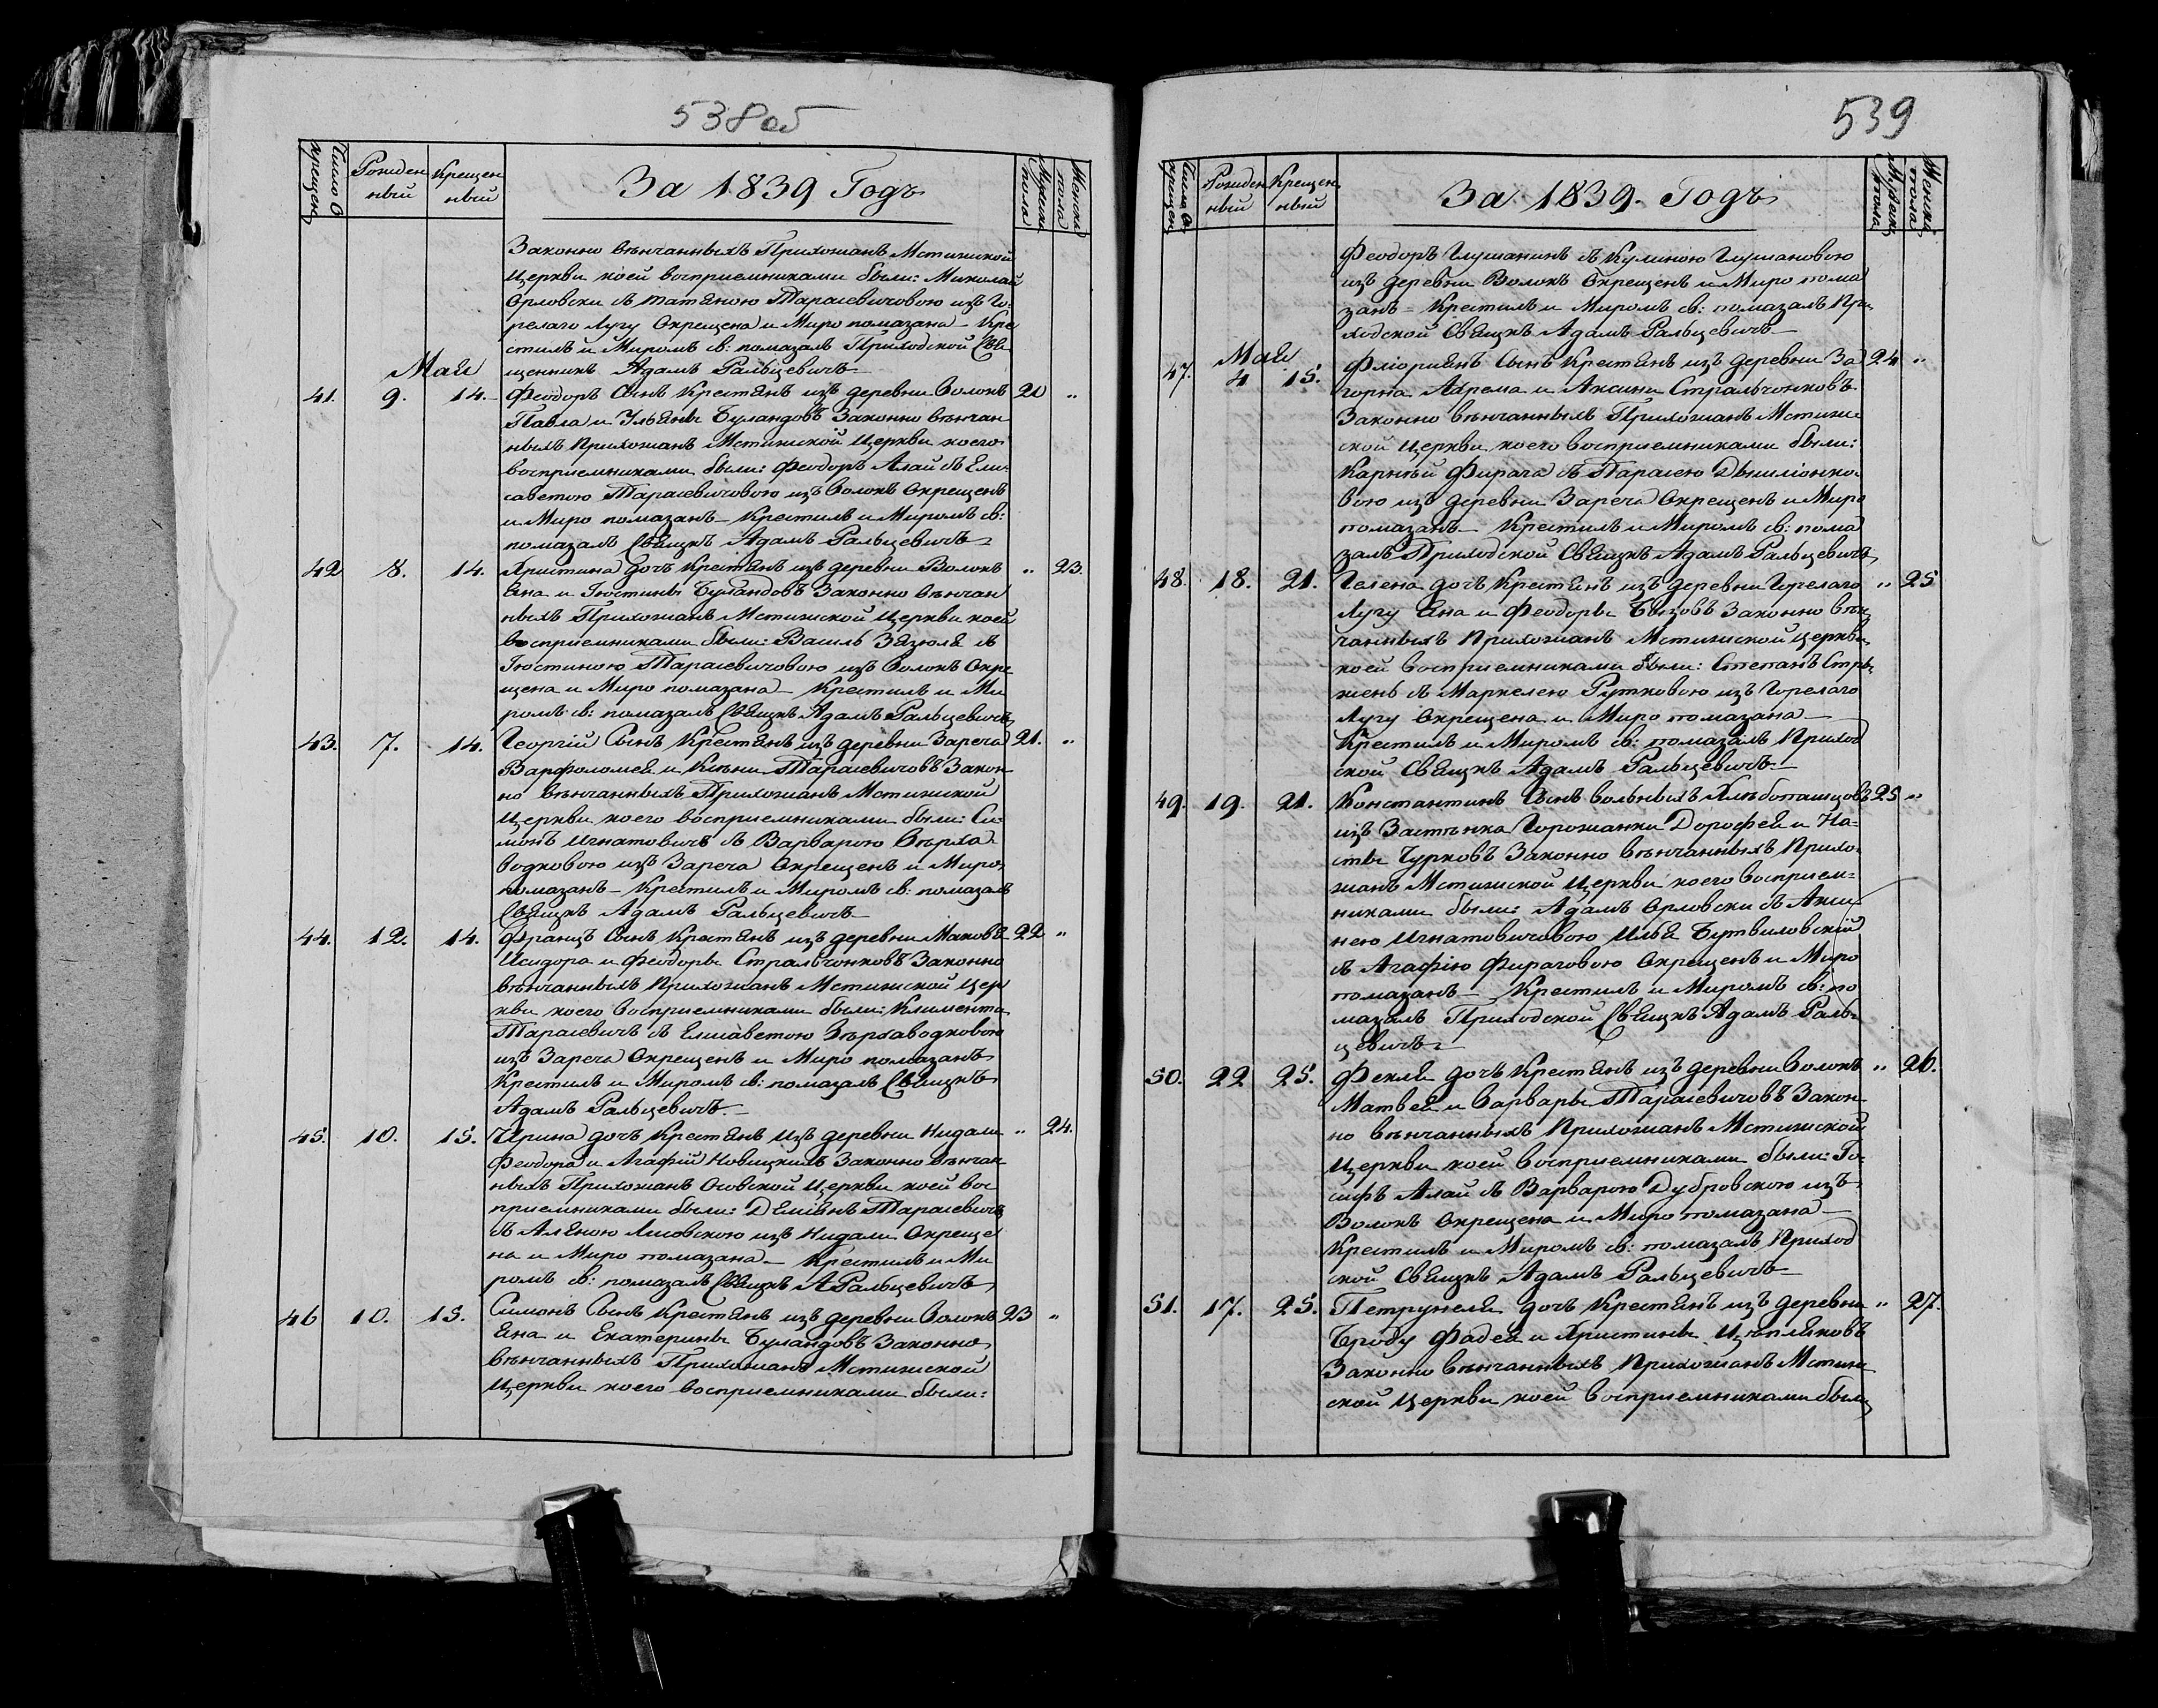 538об
Число крещен
Рожден ный
Крещен ный
За 1839 Годъ
Мужеска пола
Женска пола
Законно вѣнчанныхъ Прихожанъ Мстижской
Церкви коей воспріемниками были: Миколай
Орловски съ Татяною Тарасевичовою изъ Го-
релаго Лугу Окрещена и Миро помазана – Кре
стилъ и Миромъ св: помазалъ Приходской Свя
щенникъ Адамъ Ральцевичъ
Мая
41. 9. 14. Феодоръ Сынъ Крестянъ изъ деревни Волокъ 20 "
Павла и Ульяны Буландовъ Законно вѣнчан
ныхъ Прихожанъ Мстижской Церкви коего
воспріемниками были: Феодоръ Алай съ Ели-
саветою Тарасевичовою изъ Волокъ Окрещенъ
и Миро помазанъ – Крестилъ и Миромъ св:
помазалъ Свящкъ Адамъ Ральцевичъ
42 8. 14. Христина дочь Крестянъ изъ деревни Волокъ " 23.
Яна и Іюстины Буландовъ Законно вѣнчан
ныхъ Прихожанъ Мстижской Церкви коей
воспріемниками были: Василь Зязюля съ
Іюстиною Тарасевичовою изъ Волокъ Окре
щена и Миро помазана – Крестилъ и Ми
ромъ св: помазалъ Свящкъ Адамъ Ральцевичъ
43. 7. 14. Георгій Сынъ Крестянъ изъ деревни Зареча 21. "
Варфоломея и Тарасевичовъ Закон
но вѣнчанныхъ Прихожанъ Мстижской
Церкви коего воспріемниками были: Си-
монъ Игнатовичъ съ Варварою Вѣрха
водковою изъ Зареча Окрещенъ и Миро
помазанъ – Крестилъ и Миромъ св: помазалъ
Свящкъ Адамъ Ральцевичъ
44. 12. 14. Францъ Сынъ Крестянъ изъ деревни Маковъя 22 "
Исидора и Феодоры Стральчонковъ Законно
вѣнчанныхъ Прихожанъ Мстижской Цер
кви коего воспріемниками были: Климента
Тарасевичъ съ Елисаветою Вѣрхаводковою
изъ Зареча Окрещенъ и Миро помазанъ
Крестилъ и Миромъ св: помазалъ Свящкъ
Адамъ Ральцевичъ –
45. 10. 15. Ирина дочь Крестянъ изъ деревни Нидали " 24.
Феодора и Агафіи Новицкихъ Законно вѣнчан
ныхъ Прихожанъ Осовской Церкви коей вос
пріемниками были: Деміянъ Тарасевичъ
съ Аленою Лисовскою изъ Нидали Окреще
на и Миро помазана – Крестилъ и Ми
ромъ св: помазалъ Свящкъ А Ральцевичъ
46 10. 15. Симонъ Сынъ Крестянъ изъ деревни Волокъ 23 "
Яна и Екатерины Буландовъ Законно
вѣнчанныхъ Прихожанъ Мстижской
Церкви коего воспріемниками были:
539
Число крещен
Рожден ный
Крещен ный
За 1839. Годъ
Мужеск пола
Женска пола
Феодоръ Глушанинъ съ Кулиною Глушановою
изъ деревни Волокъ Окрещенъ и Миро пома
занъ – Крестилъ и Миромъ св: помазалъ При
ходской Свящкъ Адамъ Ральцевичъ
Мая
47. 4 15. Флоріянъ Сынъ Крестянъ изъ деревни За 24 "
горна Ахрема и Аксини Стральчонковъ
Законно вѣнчанныхъ Прихожанъ Мстиж
ской Церкви коего воспріемниками были:
Карнѣй Фирага съ Парасею
вою изъ деревни Зареча Окрещенъ и Миро
помазанъ – Крестилъ и Миромъ св: пома
залъ Приходской Свящкъ Адамъ Ральцевичъ
48. 18. 21. Гелена дочь Крестянъ изъ деревни Горелаго " 25
Лугу Яна и Феодоры Бызовъ Законно вѣн
чанныхъ Прихожанъ Мстижской Церкви
коей воспріемниками были: Степанъ Стры
жень съ Маркелею Рутковою изъ Горелаго
Лугу Окрещена и Миро помазана –
Крестилъ и Миромъ св: помазалъ Приход
ской Свящкъ Адамъ Ральцевичъ –
49. 19. 21. Константинъ Сынъ вольныхъ Хлѣбопашцовъ 25 "
изъ Застѣнка Горожанки Дорофея и На-
сты Чурковъ Законно вѣнчанныхъ Прихо-
жанъ Мстижской Церкви коего воспріем-
никами были: Адамъ Орловски съ Акси
нею Игнатовичовою Илья Бутвиловскій
съ Агафіею Фираговою Окрещенъ и Миро
помазанъ – Крестилъ и Миромъ св: по
мазалъ Приходской Свящкъ Адамъ Раль-
цевичъ –
50. 22 25. Фекля дочь Крестянъ изъ деревни Волокъ " 26.
Матвея и Варвары Тарасевичовъ Закон
но вѣнчанныхъ Прихожанъ Мстижской
Церкви коей воспріемниками были: Іо-
сифъ Алай съ Варварою Дубровскою изъ
Волокъ Окрещена и Миро помазана –
Крестилъ и Миромъ св: помазалъ Приход
ской Свящкъ Адамъ Ральцевичъ –
51. 17. 25. Петрунеля дочь Крестянъ изъ деревни " 27.
Броду Фадея и Христины Цѣпляковъ
Законно вѣнчанныхъ Прихожанъ Мстиж
ской Церкви коей воспріемниками были